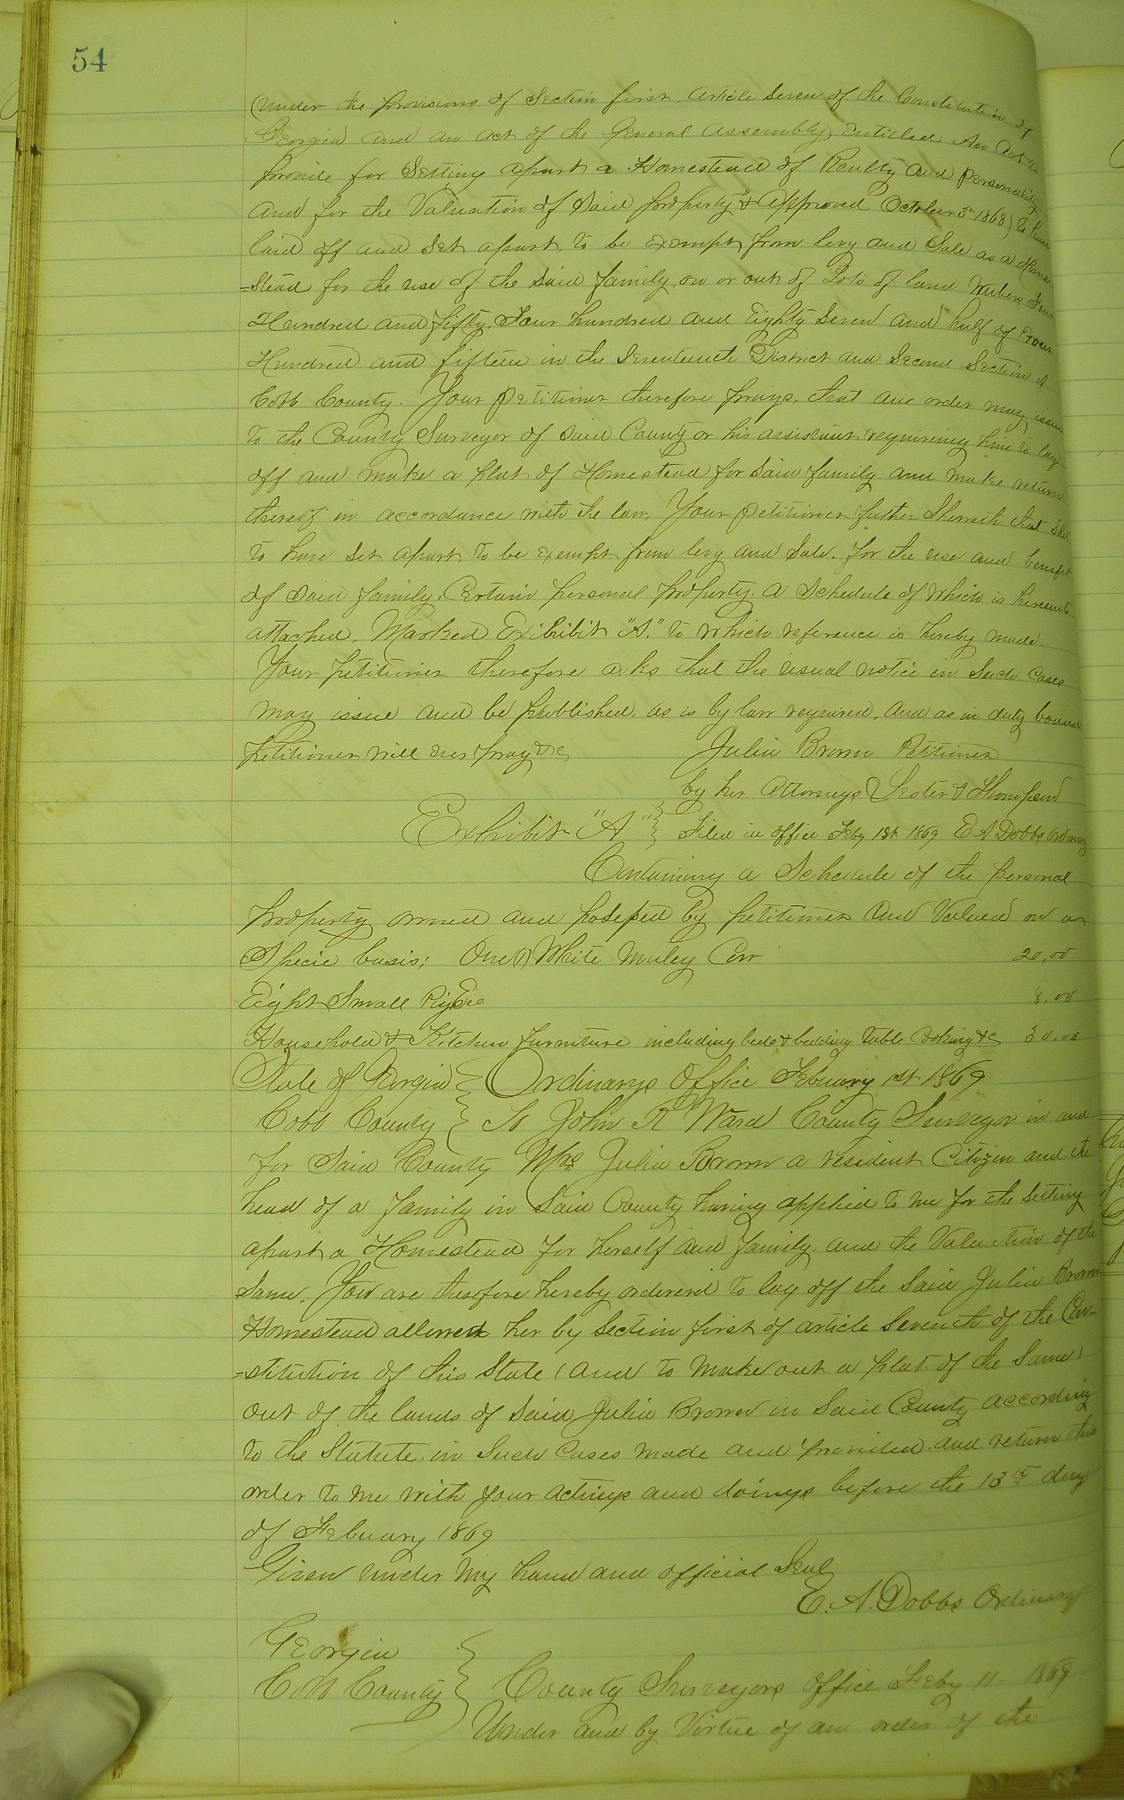 54
(under the provisions of Section first Article Seven of the Constitution of
Georgia and an act of the General Assembly Entitled An Act to
provide for Setting apart a Homestead of Realty and personality
and for the Valuation of Said property & Approved October 3rd 1868) to have
laid off and set apart to be exempt from levy and Sale as a Home-
=stead for the use of the said family on or out of Lots of land Numbers Four
Hundred and fifty. Four hundred and Eighty Seven and half of Four
Hundred and fifteen in the Seventeenth District and Second Section of
Cobb County. Your petitioner therefore prays, that an order may issue
to the County Surveyor of said County or his assistant requiring him to lay
off and make a plat of Homestead for Said family and make return
thereof in accordance with the law. Your petitioner futher Sheweth that She
to have set apart to be exempt from levy and Sale. for the use and benefit
of said family. Certain personal property a Schedule of which is hereunto
attached. Marked Exibibit "A." to which reference is hereby made.
Your petitioner therefore asks that the usual notice in Such Cases
may issue and be published. as is by law required. and as in duty bound
petitioner will ever pray &c Julia Brown Petitioner
by her Attorneys Lester & Thompson
Exhibit "A" } Filed in office Feby 1st 1869 E A Dobbs Ordinary
Containing a Schedule of the personal
property owned and possessed by petitioner and Valued on a
Specie basis; One (1) White Muley Cow 20.00
Eight Small Pigs 8.00
Household & Kitchen furniture including beds & bedding table Cooking &c 30.00
State of Georgia } Ordinarys Office Febuary 1st 1869
Cobb County } To John R Ward County Surveyor in and
for Said County Mrs Julia Brown a resident Citizen and the
head of a family in Said County having applied to me for the Setting
apart a Homestead for herself and family and the Valuation of the
Same. You are therefore hereby ordererd to lay off the Said Julia Brown
Homestead allowed her by Section first of article Seventh of the Con-
=stitution of this State (and to make out a plat of the Same)
out of the lands of said Julia Brown in Said County according
to the Statute in Such Cases made and provided. and return this
order to me with your actings and doings before the 13th day
of Febuary 1869
Given under my hand and official Seal
E. A. Dobbs Ordinary
Georgia
Cobb County } County Surveyors office Feby 11 1869
Under and by Virtue of an order of the